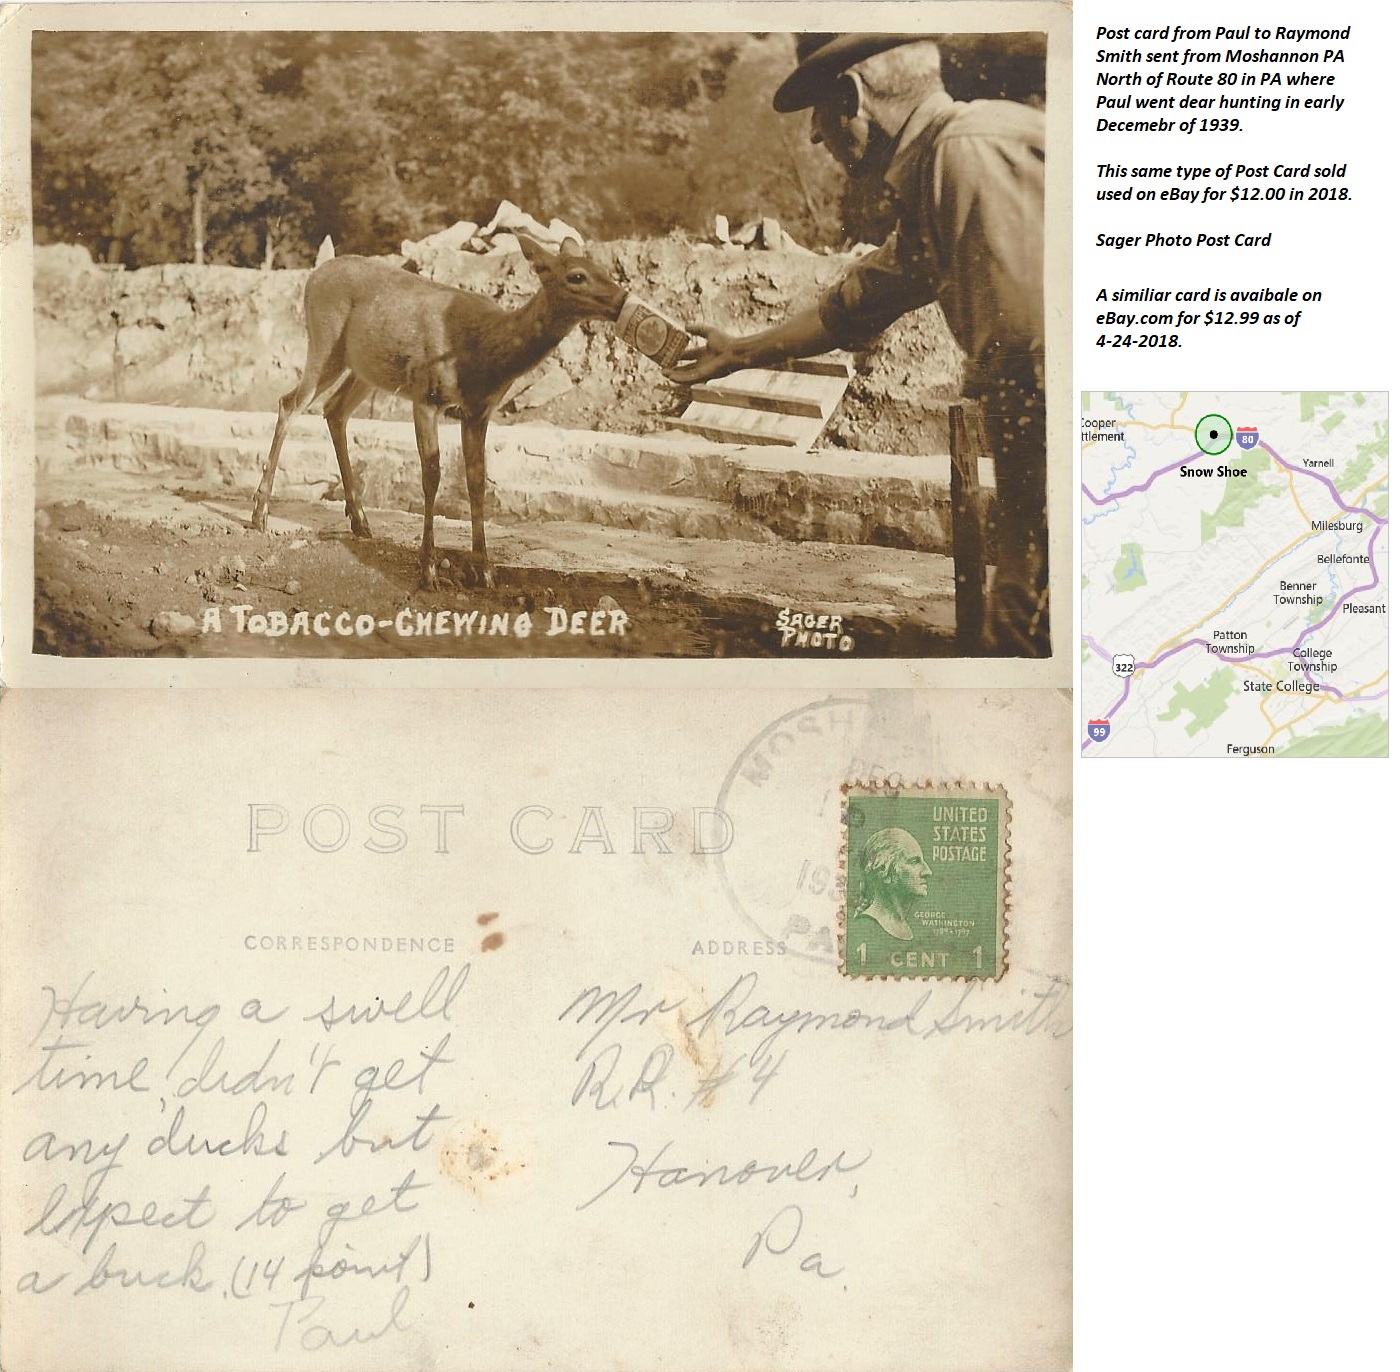 Post card from Paul to Raymond
Smith sent from Moshannon PA
North of Route 80 in PA where
Paul went dear hunting in early
Decemebr of 1939.
This same type of Post Card sold
used on eBay for $12.00 in 2018.
Sager Photo Post Card
A similiar card is avaibale on
eBay.com for $12.99 as of
4-24-2018.
A TOBACCO-CHEWING DEER
SAGER
PHOTO
Cooper
ttlement
80
Snow Shoe
Yarnell
Milesburg
Bellefonte
Benner
Township
Pleasant
Patton
Township
College
Township
322
State College
99
Ferguson
MOSH
DEC
19
PA
POST CARD
UNITED
STATES
POSTAGE
GEORGE
WASHINGTON
1789-1797
1 CENT 1
CORRESPONDENCE
ADDRESS
Having a swell
time, didn't get
any ducks but
expect to get
a buck. (14 point)
Paul
Mr Raymond Smith
R.R. #4
Hanover,
Pa.